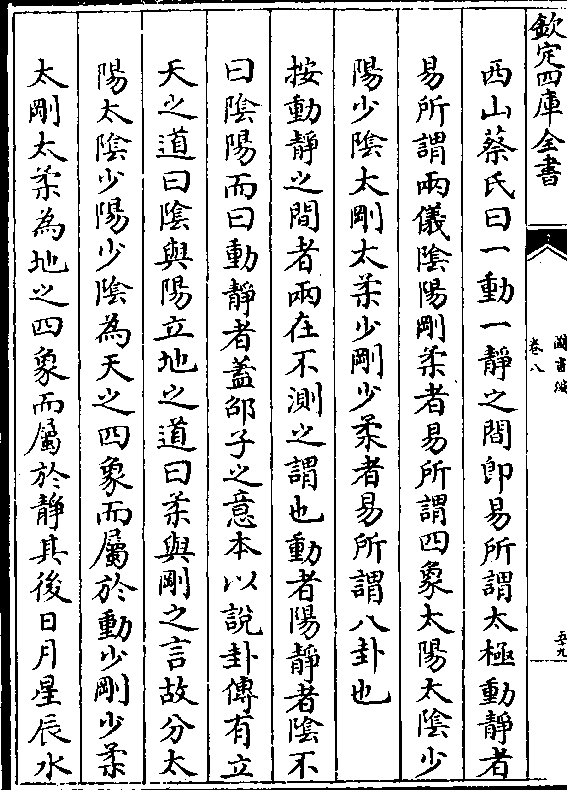 欽定四庫全書
圖書編
卷八
五十九
西山蔡氏曰一動一靜之間即易所謂太極動靜者
易所謂兩儀陰陽剛柔者易所謂四象太陽太陰少
陽少陰太剛太柔少剛少柔者易所謂八卦也
按動靜之間者兩在不測之謂也動者陽靜者陰不
曰陰陽而曰動靜者蓋邵子之意本以說卦傳有立
天之道曰陰與陽立地之道曰柔與剛之言故分太
陽太陰少陽少陰為天之四象而屬於動少剛少柔
太剛太柔為地之四象而屬於靜其後日月星辰水